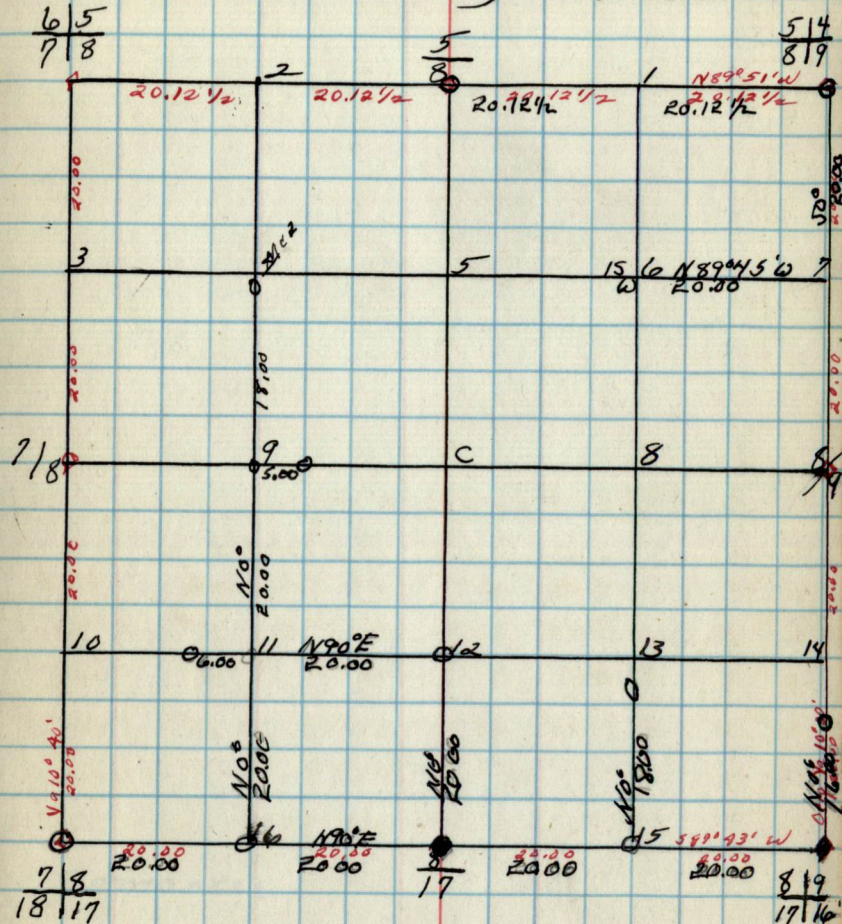 6 | 5
7 | 8
5
8
5 | 4
8 | 9
2
1
N89°51'W
20.12 1/2
20.12 1/2
20.12 1/2
20.12 1/2
20.00
S0°
20.00
3
Mc2
5
15
6
N89°45'W
7
W
20.00
20.00
18.00
20.00
7/8
9
5.00
C
8
8/9
20.00
N0°
20.00
20.00
10
6.00
11
N90°E
20.00
12
13
14
Va 10° 40'
20.00
N0°
20.00
N0°
20.00
N0°
18.00
N0°
16
N90°E
15
S89°43'W
20.00
20.00
20.00
20.00
20.00
20.00
20.00
20.00
7 | 8
18 | 17
8
17
8 | 9
17 | 16